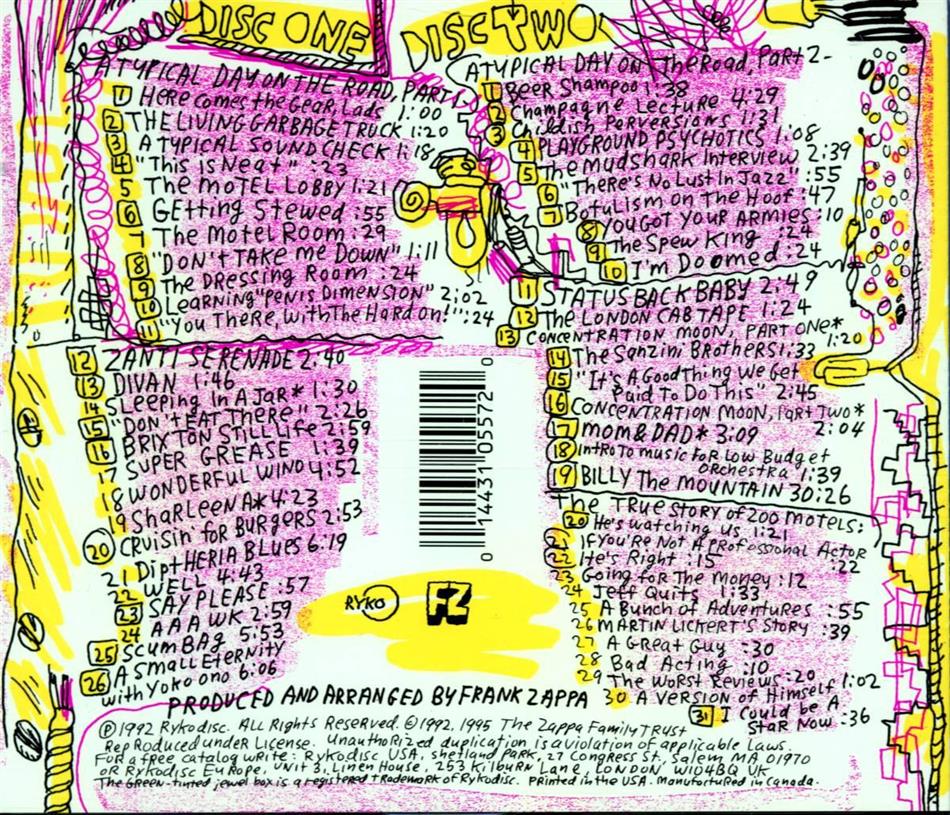 DISC ONE
A TYPICAL DAY ON THE ROAD, PART 1
1 Here comes the Gear, Lads 1:00
2 THE LIVING GARBAGE TRUCK 1:20
3 A TYPICAL SOUND CHECK 1:18
4 "This is Neat" :23
5 The MOTEL LOBBY 1:21
6 GEtting Stewed :55
7 The Motel Room :29
8 "DON't TAKE me DOWN" 1:11
9 The DRESSING Room :24
10 LEARNING "PENIS DIMENSION" 2:02
11 "You THERE, WITH THE HARD On!" :24
12 ZANTI SERENADE 2:40
13 DIVAN 1:46
14 SLEEPING IN A JAR* 1:30
15 "DON'T EAT THERE" 2:26
16 BRIXTON STILL LIFE 2:59
17 SUPER GREASE 1:39
18 WONDERFUL WIND 4:52
19 SHARLEENA* 4:23
20 CRUISIN' for BURGERS 2:53
21 DIPtHERIA BLUES 6:19
22 WELL 4:43
23 SAY PLEASE :57
24 AAAWK 2:59
25 SCUMBAG 5:53
26 A SMALL ETERNITY
with YOKO ONO 6:06
DISC TWO
A TYPICAL DAY ON The Road, PART 2-
1 Beer Shampoo 1:38
2 Champagne Lecture 4:29
3 Childish Perversions 1:31
4 PLAYGROUND PSYCHOTICS 1:08
5 The Mudshark Interview 2:39
6 "THERE'S No Lust In JAZZ" :55
7 Botulism on The Hoof :47
8 YOU GOT YOUR ARMIES :10
9 The Spew King :24
10 I'm Doomed :24
11 STATUS BACK BABY 2:49
12 The LONDON CAB TAPE 1:24
13 CONCENTRATION MOON, PART ONE*
1:20
14 The Sanzini BROTHERS 1:33
15 "It's A Good Thing We Get
Paid To Do This" 2:45
16 CONCENTRATION MOON, PART Two*
2:04
17 MOM & DAD* 3:09
18 INTRO TO MUSIC FOR LOW Budget
ORCHESTRA 1:39
19 BILLY The MOUNTAIN 30:26
The TRUE STORY OF 200 MOTELS:
20 He's watching us 1:21
21 If You're Not A PROFESSIONAL Actor
:22
22 He's Right :15
23 Going for The Money :12
24 Jeff Quits 1:33
25 A Bunch of Adventures :55
26 MARTIN LICKERT'S STORY :39
27 A Great Guy :30
28 Bad Acting :10
29 The Worst Reviews :20
30 A VERSION of Himself 1:02
31 I Could be A
STAR NOW :36
0 14431 05572 0
RYKO
FZ
PRODUCED AND ARRANGED BY FRANK ZAPPA
℗1992 Rykodisc. ALL Rights Reserved. ©1992, 1995 The Zappa Family TRUST
Reproduced under License. Unauthorized duplication is a violation of applicable Laws.
FOR a free catalog write: Rykodisc USA, Shetland Park, 27 Congress St., Salem MA 01970
OR Rykodisc Europe, Unit 3, Linen House, 253 Kilburn Lane, LONDON W104BQ UK
The GREEN-tinted jewel box is a registered trademark of Rykodisc. Printed in the USA. Manufactured in Canada.